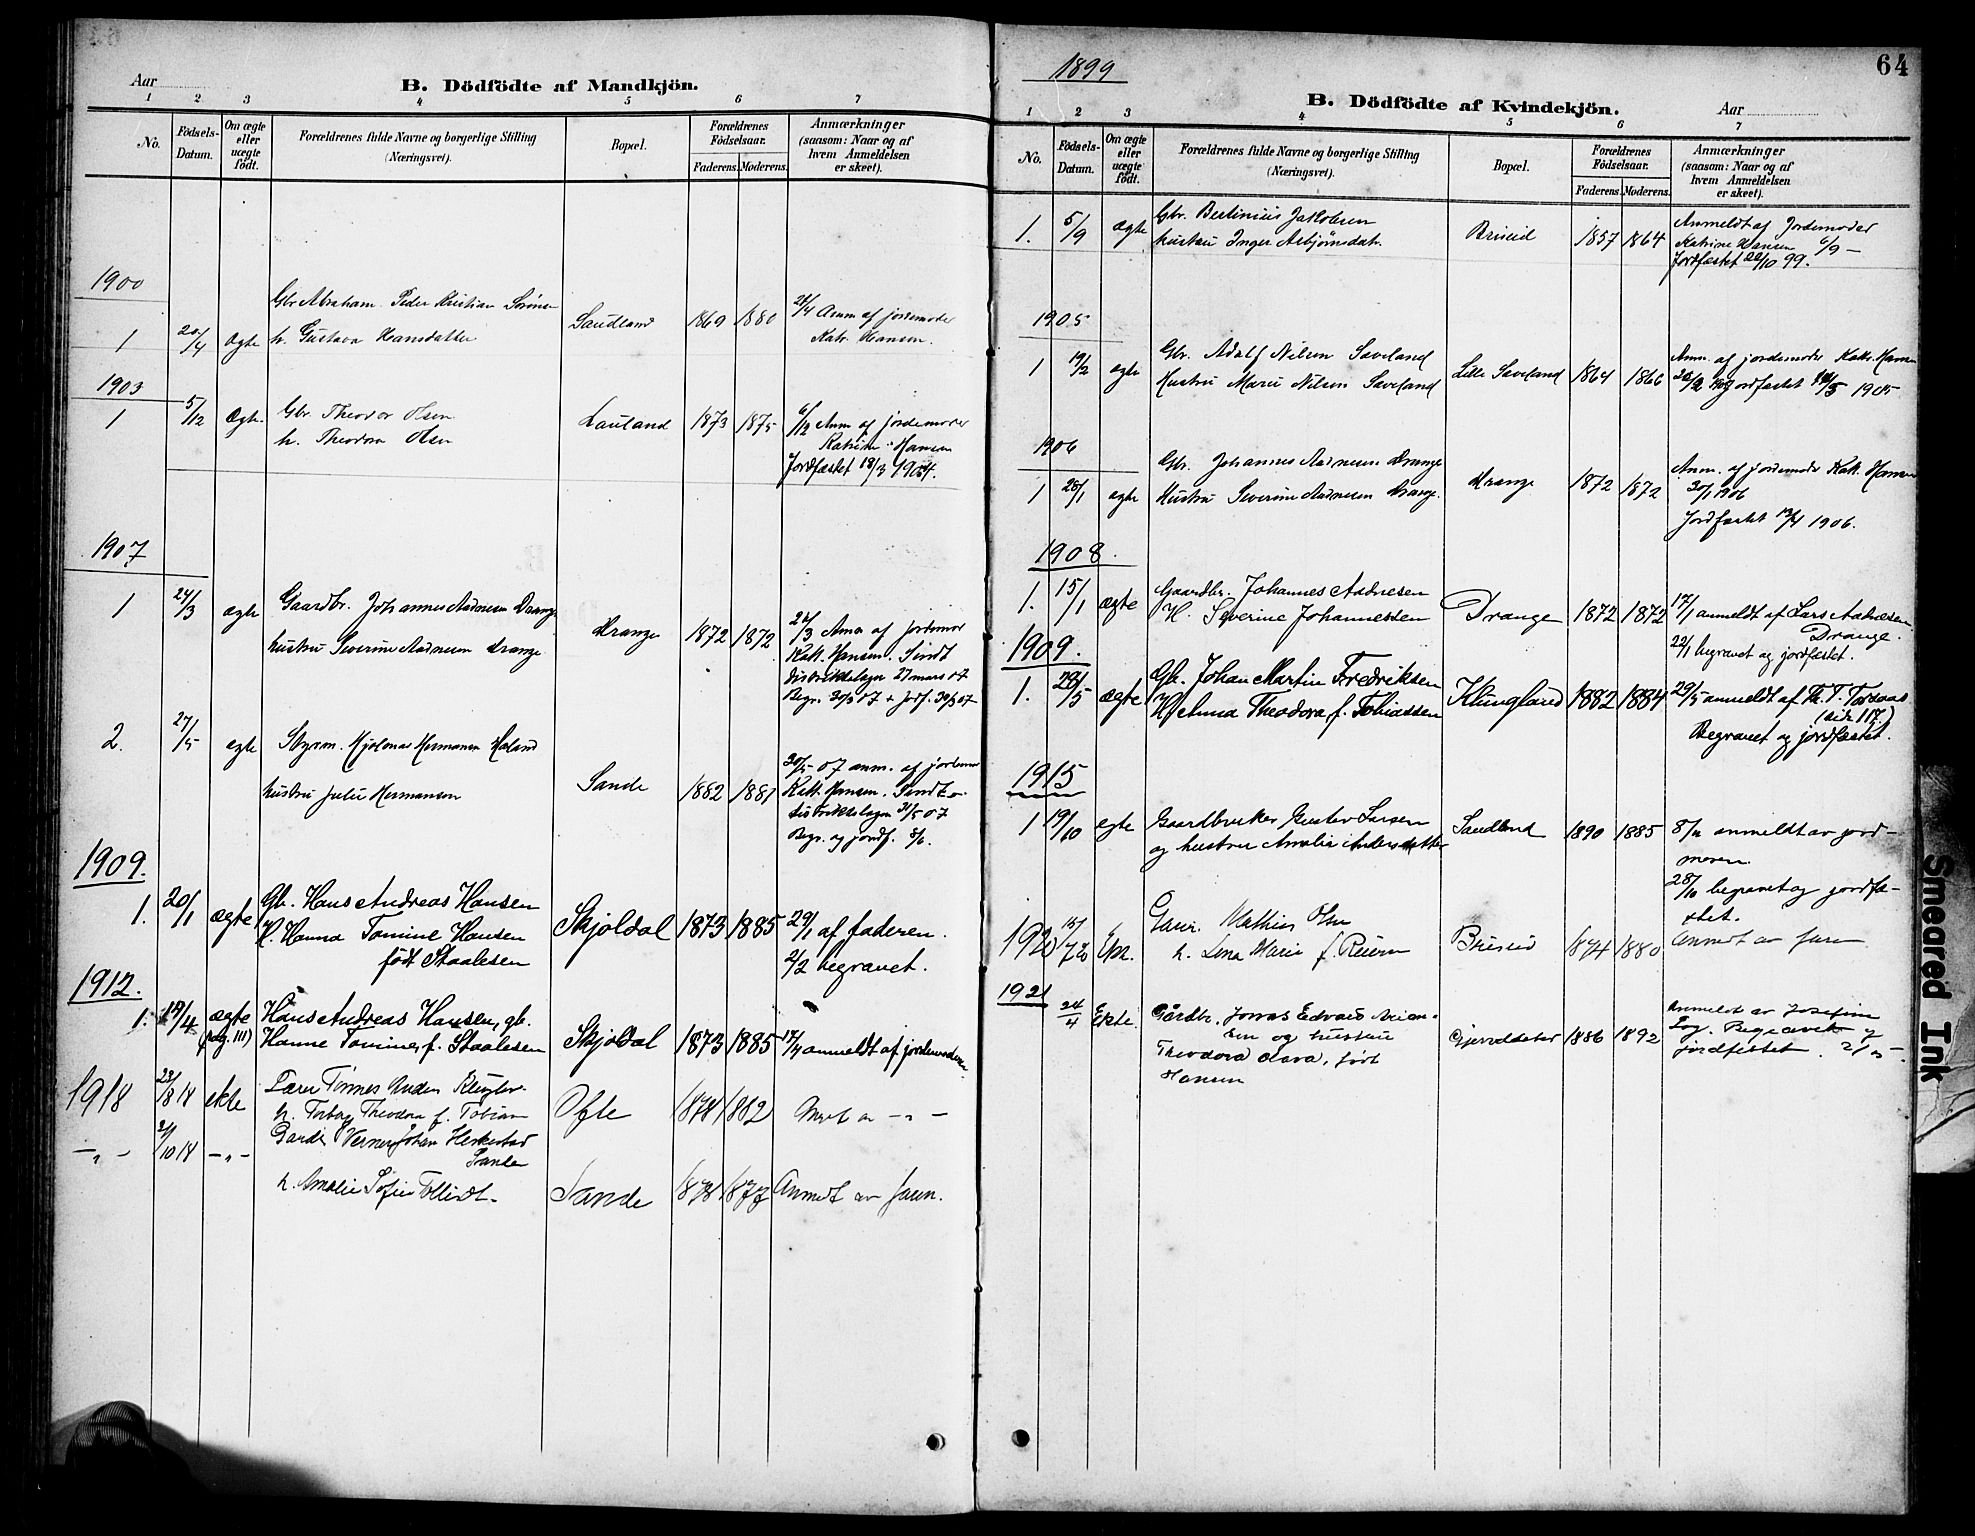 Aar
B. Dödfödte af Mandkjön.
1 2 3 4 5 6 7
No.
Födsels-Datum.
Om ægte eller uægte födt.
Forældrenes fulde Navne og borgerlige Stilling
(Næringsvei).
Bopæl.
Forældrenes Födselsaar.
Faderens. Moderens.
Anmærkninger
(saasom: Naar og af
hvem Anmeldelsen
er skeet).
1900
Gbr Abraham Peder Kristian
1 20/4 ægte h. Gustava Hansdatter Sandland 1869 1880 21/4 Anm af jordemoder
Katr. Hansen.
1903
1 5/12 Ægte. Gbr. Theodor Olsen Lauland 1873 1875 6/12 Anm af jordemoder
h. Theodora Olsen Katrine Hansen
Jordfæstet 18/3 1904.
1907
1 24/3 ægte Gaardbr. Johannes Aadnesen Drange
hustru Severine Aadnesen Drange Drange 1872 1872 24/3 Anm af jordemor
Katr. Hansen. Sindt
distriktslægen 27 mars 07
Begr. 30/3 07 + jordf. 30/3 07
2. 27/5 egte Styrm. Hjalmar Hermansen Haland
hustru Julie Hermansen Sande 1882 1881 30/5 07 anm. af jordemor
Katr. Hansen. Sindt
distriktslægen 31/5 07
Begr. og jordf.
1909.
1. 20/1 ægte Gb. Hans Andreas Hansen
H. Hanna Tomine Hansen Skjoldal 1873 1885 29/1 af faderen.
født Staalesen 2/2 begravet.
1912.
1. 14/4 ægte Hans Andreas Hansen, gb.
(pag. 111) Hanne Tomine, f. Staalesen Skjoldal 1873 1885 17/4 anmeldt af jordemoderen
1918 23/8 18 ekte Lærer Tønnes Anders
h. Torborg Theodora f. Tobias Ofte 1878 1882
-"- 21/10 18 -"- Verner Johan Herkestad
Sande
h. Amalie Sofie Sande 1878 1877 Anmeldt av faren.
1899
64
B. Dödfödte af Kvindekjön.
Aar
1 2 3 4 5 6 7
No.
Födsels-Datum.
Om ægte eller uægte födt.
Forældrenes fulde Navne og borgerlige Stilling
(Næringsvei).
Bopæl.
Forældrenes Födselsaar.
Faderens. Moderens.
Anmærkninger
(saasom: Naar og af
hvem Anmeldelsen
er skeet).
1. 5/9 ægte Gbr. Bertinius Jakobsen
hustru Inger Asbjørnsdatr. Briseid 1857 1864 Anmeldt af Jordemoder
Katrine Hansen 6/9 -
Jordfæstet 22/10 99.
1905
1 19/2 ægte Gbr. Adolf Nilsen Saveland
Hustru Marie Nilsen Saveland Lille Saveland 1864 1866 Anm. af jordemoder Katr. Hansen
jordfæstet 14/5 1905
1906
1 28/1 ægte Gbr. Johannes Aadnesen Drange
Hustru Severine Aadnesen Drange. Drange 1872 1872 Anm. af jordemoder Katr. Hansen
30/1 1906
Jordfæstet 13/4 1906.
1908.
1. 15/1 ægte Gaardbr. Johannes Aadnesen
H. Severine Johannessen Drange 1872 1872 17/1 anmeldt af Lars Aadnesen
Drange.
22/1 begravet og jordfæstet.
1909.
1. 28/5 ægte Gb. Johan Martin Fredriksen
H. Anna Theodora, f. Tobiassen Klungland 1882 1884 29/5 anmeldt af Th. T.
(side 117.)
Begravet og jordfæstet.
1915
1 19/10 egte Gaardbruker Gustav Larsen
og hustru Amalie Andersdatter Sandland 1890 1885 anmeldt av jord-
moren.
28/10 begravet og jordfæ-
stet.
1920 ekte. Mathias Olsen
h. Lina Marie f. Reiersen Briseid 1874 1880 Anmeldt av faren
1921 24/4 Ekte. Gårdbr. Jonas Edvard
sen og hustru
Theodora Olava, født
Hansen 1886 1892 Anmeldt av Josefine
Begravet og
jordfestet.
Smeared Ink